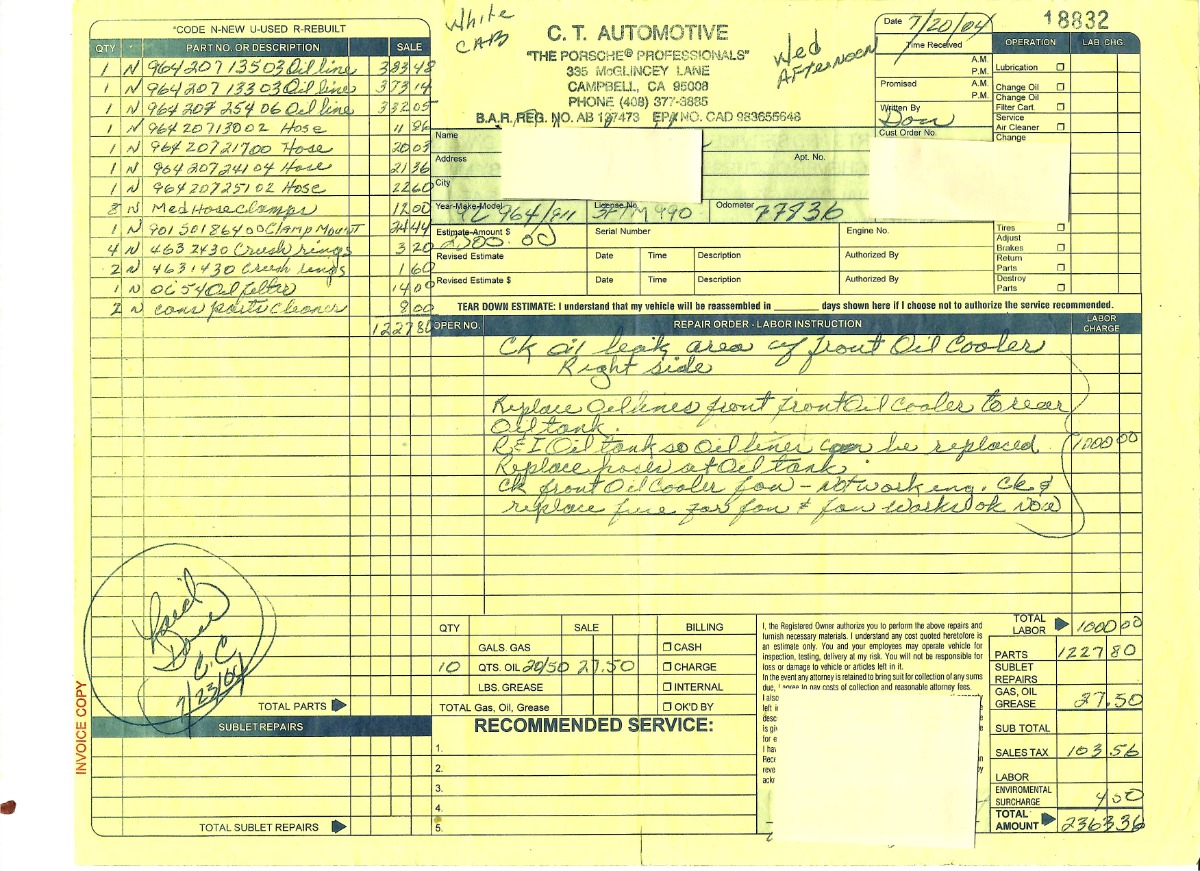 *CODE N-NEW U-USED R-REBUILT
QTY PART NO. OR DESCRIPTION SALE
1 N 964 207 135 03 Oil line 383 48
1 N 964 207 133 03 Oil line 373 14
1 N 964 207 254 06 Oil line 332 05
1 N 964 207 130 02 Hose 11 86
1 N 964 207 217 00 Hose 20 03
1 N 964 207 241 04 Hose 21 36
1 N 964 207 251 02 Hose 22 60
8 N Med Hose Clamps 12 00
1 N 901 501 864 00 Clamp Mount 24 44
4 N 463 2430 Crush rings 3 20
2 N 463 1430 Crush rings 1 60
1 N OC 54 Oil filter 14 00
2 N cans parts cleaner 8 00
1227 80
Paid
Dave
C.C
7/23/04
INVOICE COPY
TOTAL PARTS
SUBLET REPAIRS
TOTAL SUBLET REPAIRS
White
CAB
C. T. AUTOMOTIVE
"THE PORSCHE® PROFESSIONALS"
335 McGLINCEY LANE
CAMPBELL, CA 95008
PHONE (408) 377-3885
B.A.R. REG. NO. AB 127473 EPA NO. CAD 983655648
Wed
AFTERNOON
Date 7/20/04
Time Received
A.M.
P.M.
Promised A.M.
P.M.
Written By
Don
Cust Order No.
18832
OPERATION LAB. CHG.
Lubrication
Change Oil
Change Oil
Filter Cart.
Service
Air Cleaner
Change
Tires
Adjust
Brakes
Return
Parts
Destroy
Parts
Name
Address Apt. No.
City
Year-Make-Model License No. Odometer
92 964/911 3FTM990 77836
Estimate-Amount $ Serial Number Engine No.
2500.00
Revised Estimate Date Time Description Authorized By
Revised Estimate $ Date Time Description Authorized By
TEAR DOWN ESTIMATE: I understand that my vehicle will be reassembled in ________ days shown here if I choose not to authorize the service recommended.
OPER NO. REPAIR ORDER - LABOR INSTRUCTION LABOR CHARGE
Ck oil leak area of front Oil Cooler
Right side
Replace Oil lines front front Oil Cooler to rear
Oil tank.
R&I Oil tank so Oil lines can be replaced. 1000 00
Replace hoses at Oil tank
Ck front Oil Cooler fan - not working. Ck &
replace fuse for fan & fan works ok now
QTY SALE BILLING
GALS. GAS CASH
10 QTS. OIL 20/50 27.50 CHARGE
LBS. GREASE INTERNAL
TOTAL Gas, Oil, Grease OK'D BY
RECOMMENDED SERVICE:
1.
2.
3.
4.
5.
I, the Registered Owner authorize you to perform the above repairs and
furnish necessary materials. I understand any cost quoted heretofore is
an estimate only. You and your employees may operate vehicle for
inspection, testing, delivery at my risk. You will not be responsible for
loss or damage to vehicle or articles left in it.
In the event any attorney is retained to bring suit for collection of any sums
due, I agree to pay costs of collection and reasonable attorney fees.
I also
left i
desc
is giv
for e
I hav
Rece
reve
ackr
TOTAL LABOR 1000 00
PARTS 1227 80
SUBLET REPAIRS
GAS, OIL GREASE 27.50
SUB TOTAL
SALES TAX 103.56
LABOR
ENVIROMENTAL SURCHARGE 4.50
TOTAL AMOUNT 2363.36